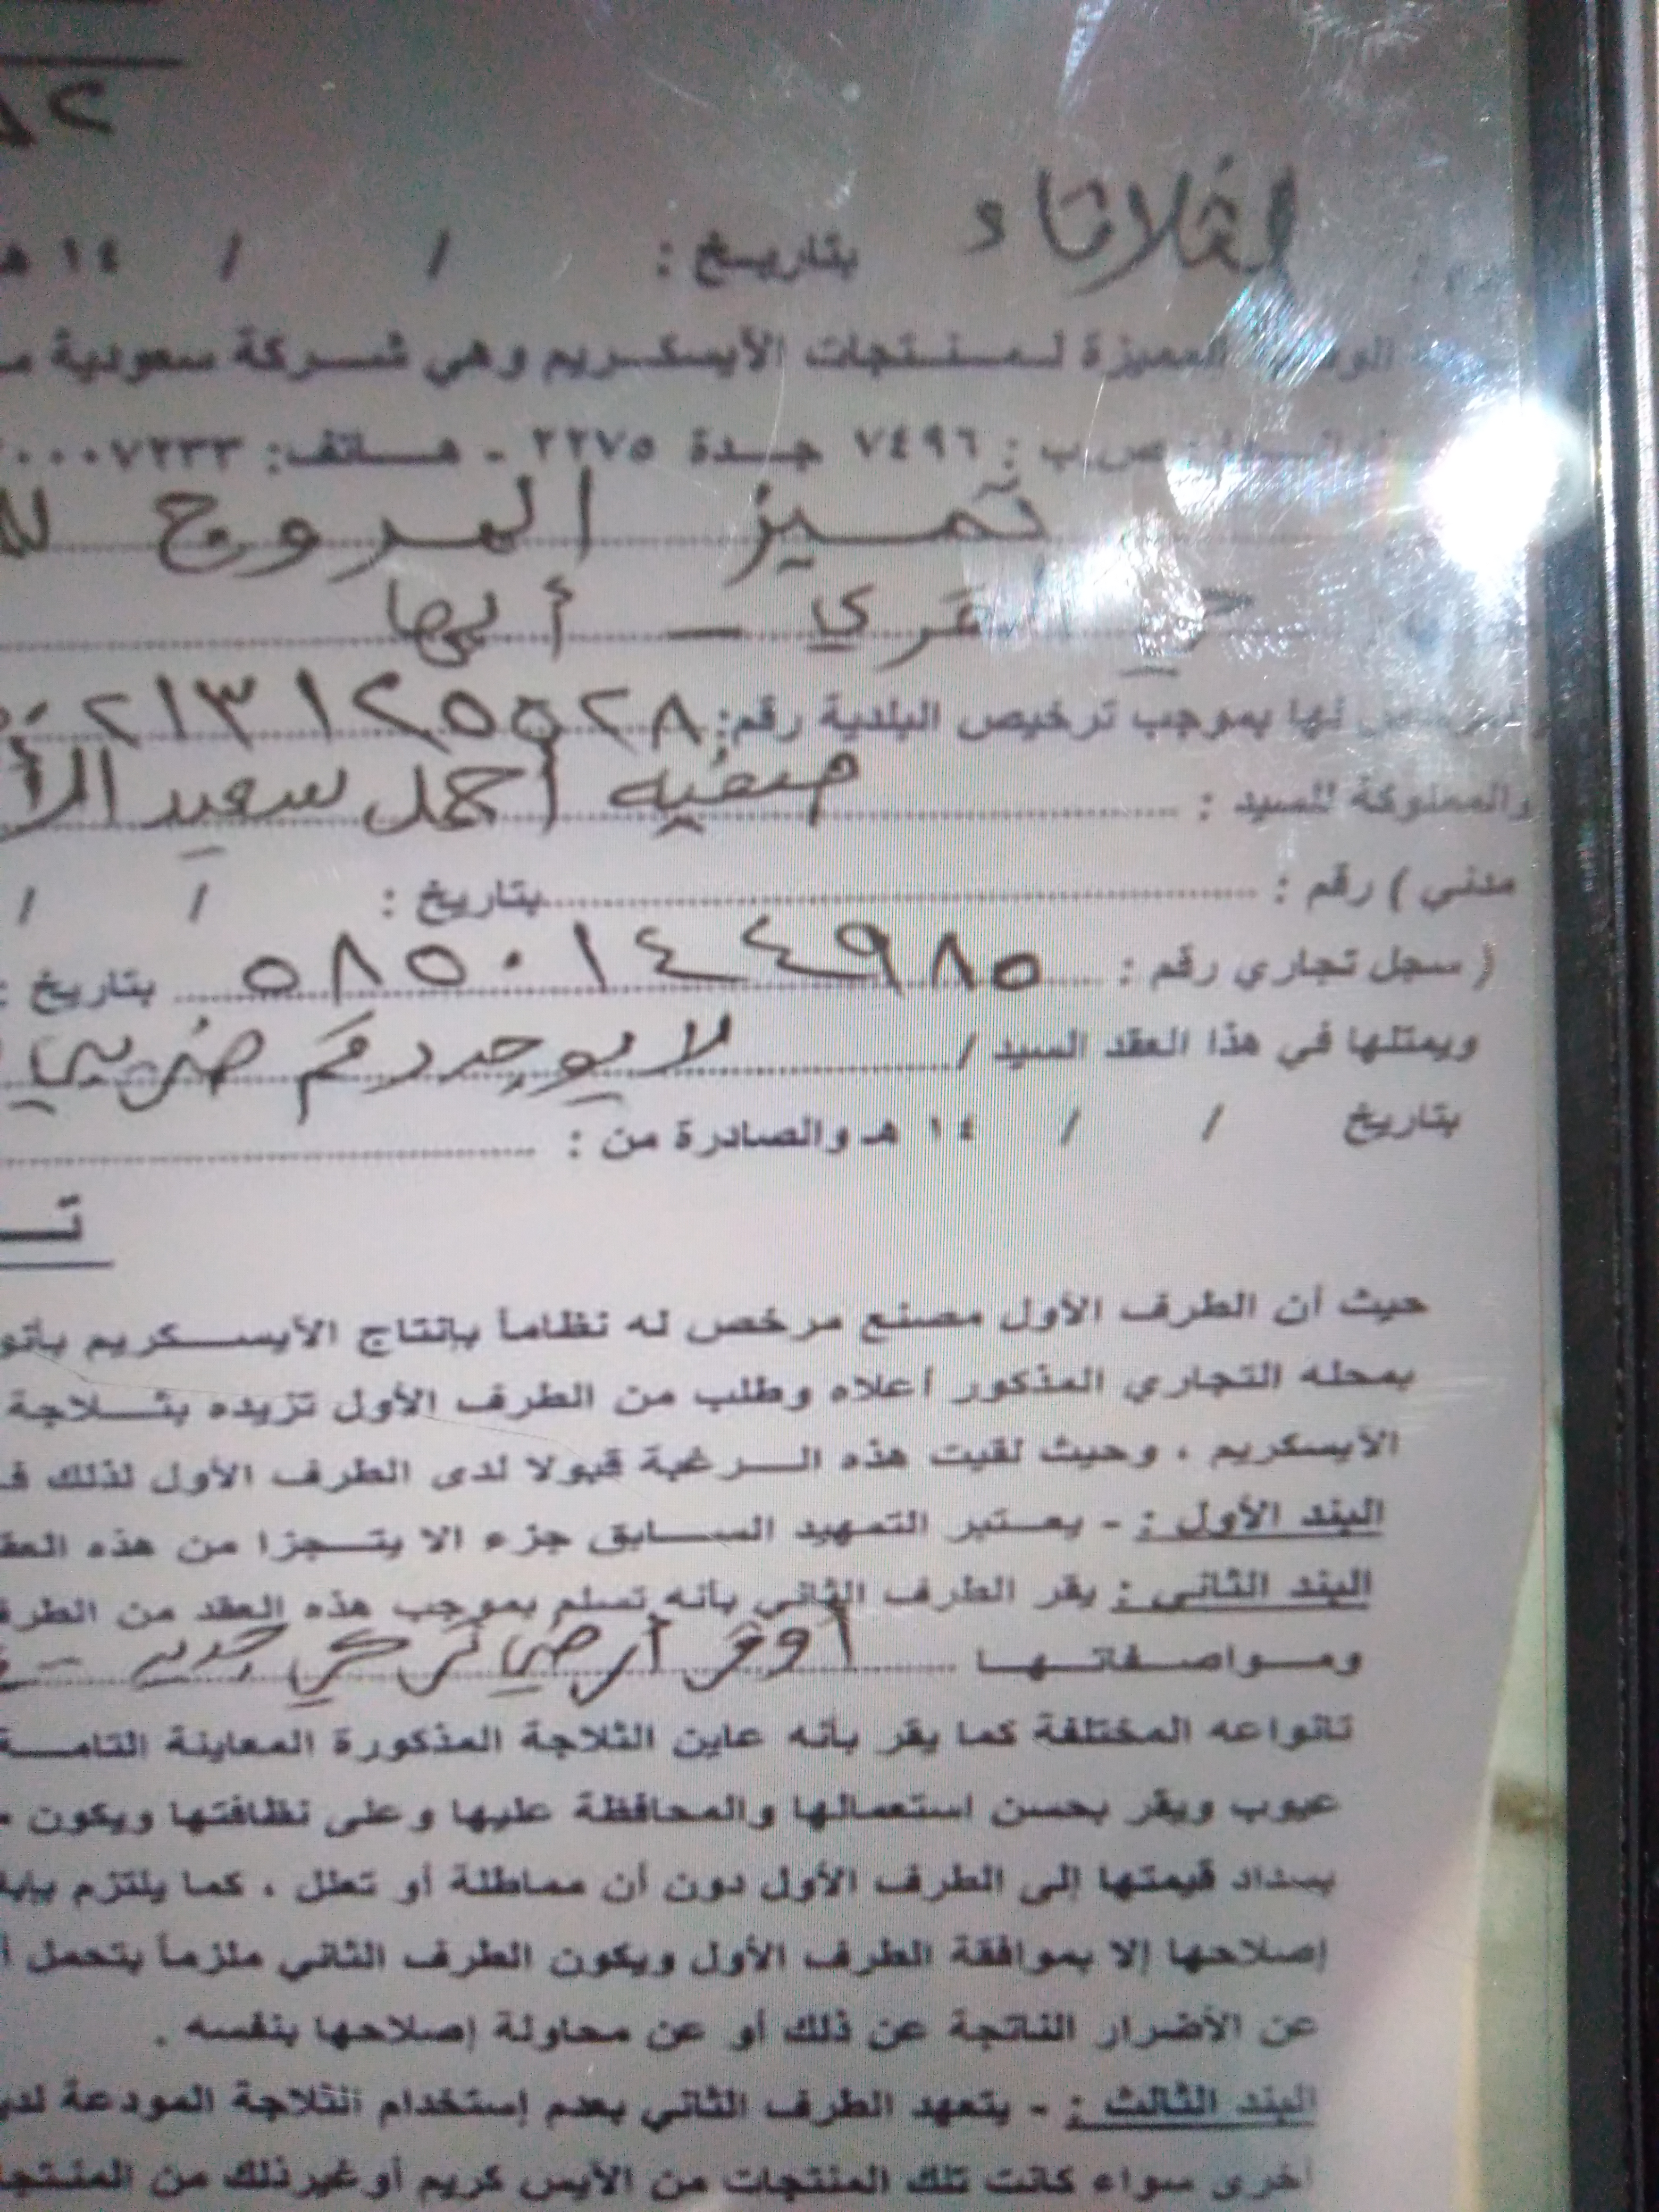 الثلاثاء بتاريخ : / / ١٤ هـ
المميزة لمنتجات الأيسكريم وهي شركة سعودية
ص.ب : ٧٤٩٦ جدة ٢٢٧٥ - هاتف: ٠٠٠٧٢٣٣
تميز المروج
القرى - أبها
لها بموجب ترخيص البلدية رقم: ٢١٣١٢٥٥٢٨
والمملوكة للسيد : صفيه أحمد سعيد
مدني ) رقم : بتاريخ : / /
( سجل تجاري رقم : ٥٨٥٠١٤٤٩٨٥ بتاريخ :
ويمثلها في هذا العقد السيد / لا يوجد رقم ضريبي
بتاريخ / / ١٤ هـ والصادرة من :
حيث أن الطرف الأول مصنع مرخص له نظاماً بإنتاج الأيسكريم
بمحله التجاري المذكور أعلاه وطلب من الطرف الأول تزيده بثلاجة
الأيسكريم ، وحيث لقيت هذه الرغبة قبولا لدى الطرف الأول لذلك
البند الأول : - يعتبر التمهيد السابق جزء الا يتجزا من هذه
البند الثاني : يقر الطرف الثاني بأنه تسلم بموجب هذه العقد من
ومواصفاتها أوفر أرضي تركي جديد -
تانواعه المختلفة كما يقر بأنه عاين الثلاجة المذكورة المعاينة
عيوب ويقر بحسن استعمالها والمحافظة عليها وعلى نظافتها ويكون
بسداد قيمتها إلى الطرف الأول دون أن مماطلة أو تعلل ، كما يلتزم
إصلاحها إلا بموافقة الطرف الأول ويكون الطرف الثاني ملزماً بتحمل
عن الأضرار الناتجة عن ذلك أو عن محاولة إصلاحها بنفسه .
البند الثالث : - يتعهد الطرف الثاني بعدم إستخدام الثلاجة المودعة
أخرى سواء كانت تلك المنتجات من الآيس كريم أوغيرذلك من